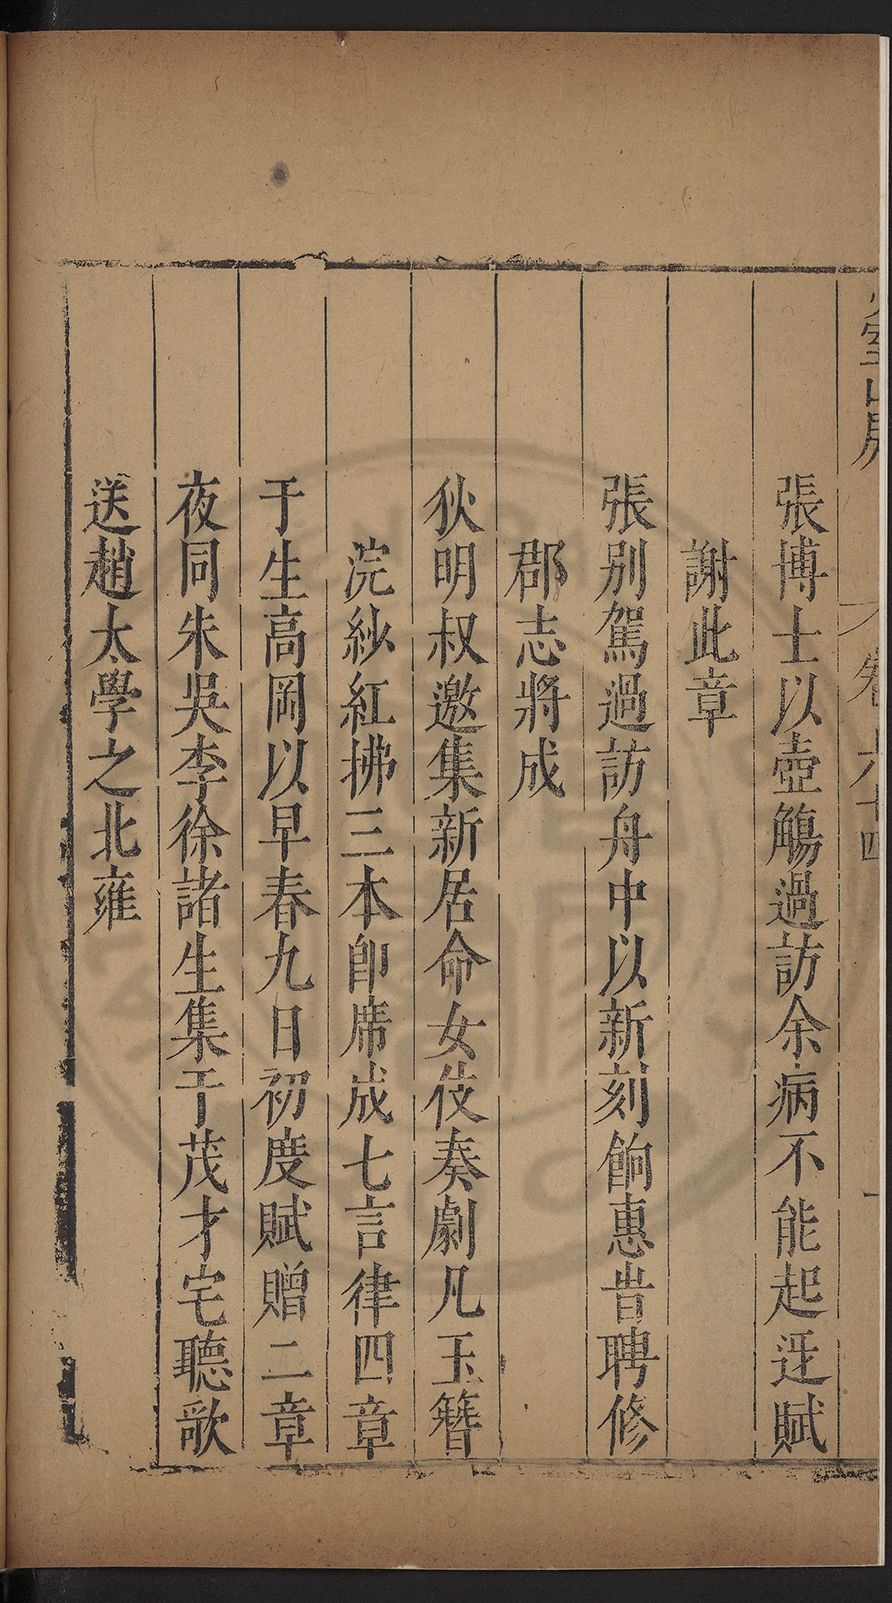 室山房
卷六十四
一
張博士以壺觴過訪余病不能起迓賦
謝此章
張别駕過訪舟中以新刻餉惠昔聘修
郡志將成
狄明叔邀集新居命女伎奏劇凡玉簪
浣紗紅拂三本卽席成七言律四章
于生高岡以早春九日初度賦贈二章
夜同朱吳李徐諸生集于茂才宅聽歌
送趙太學之北雍